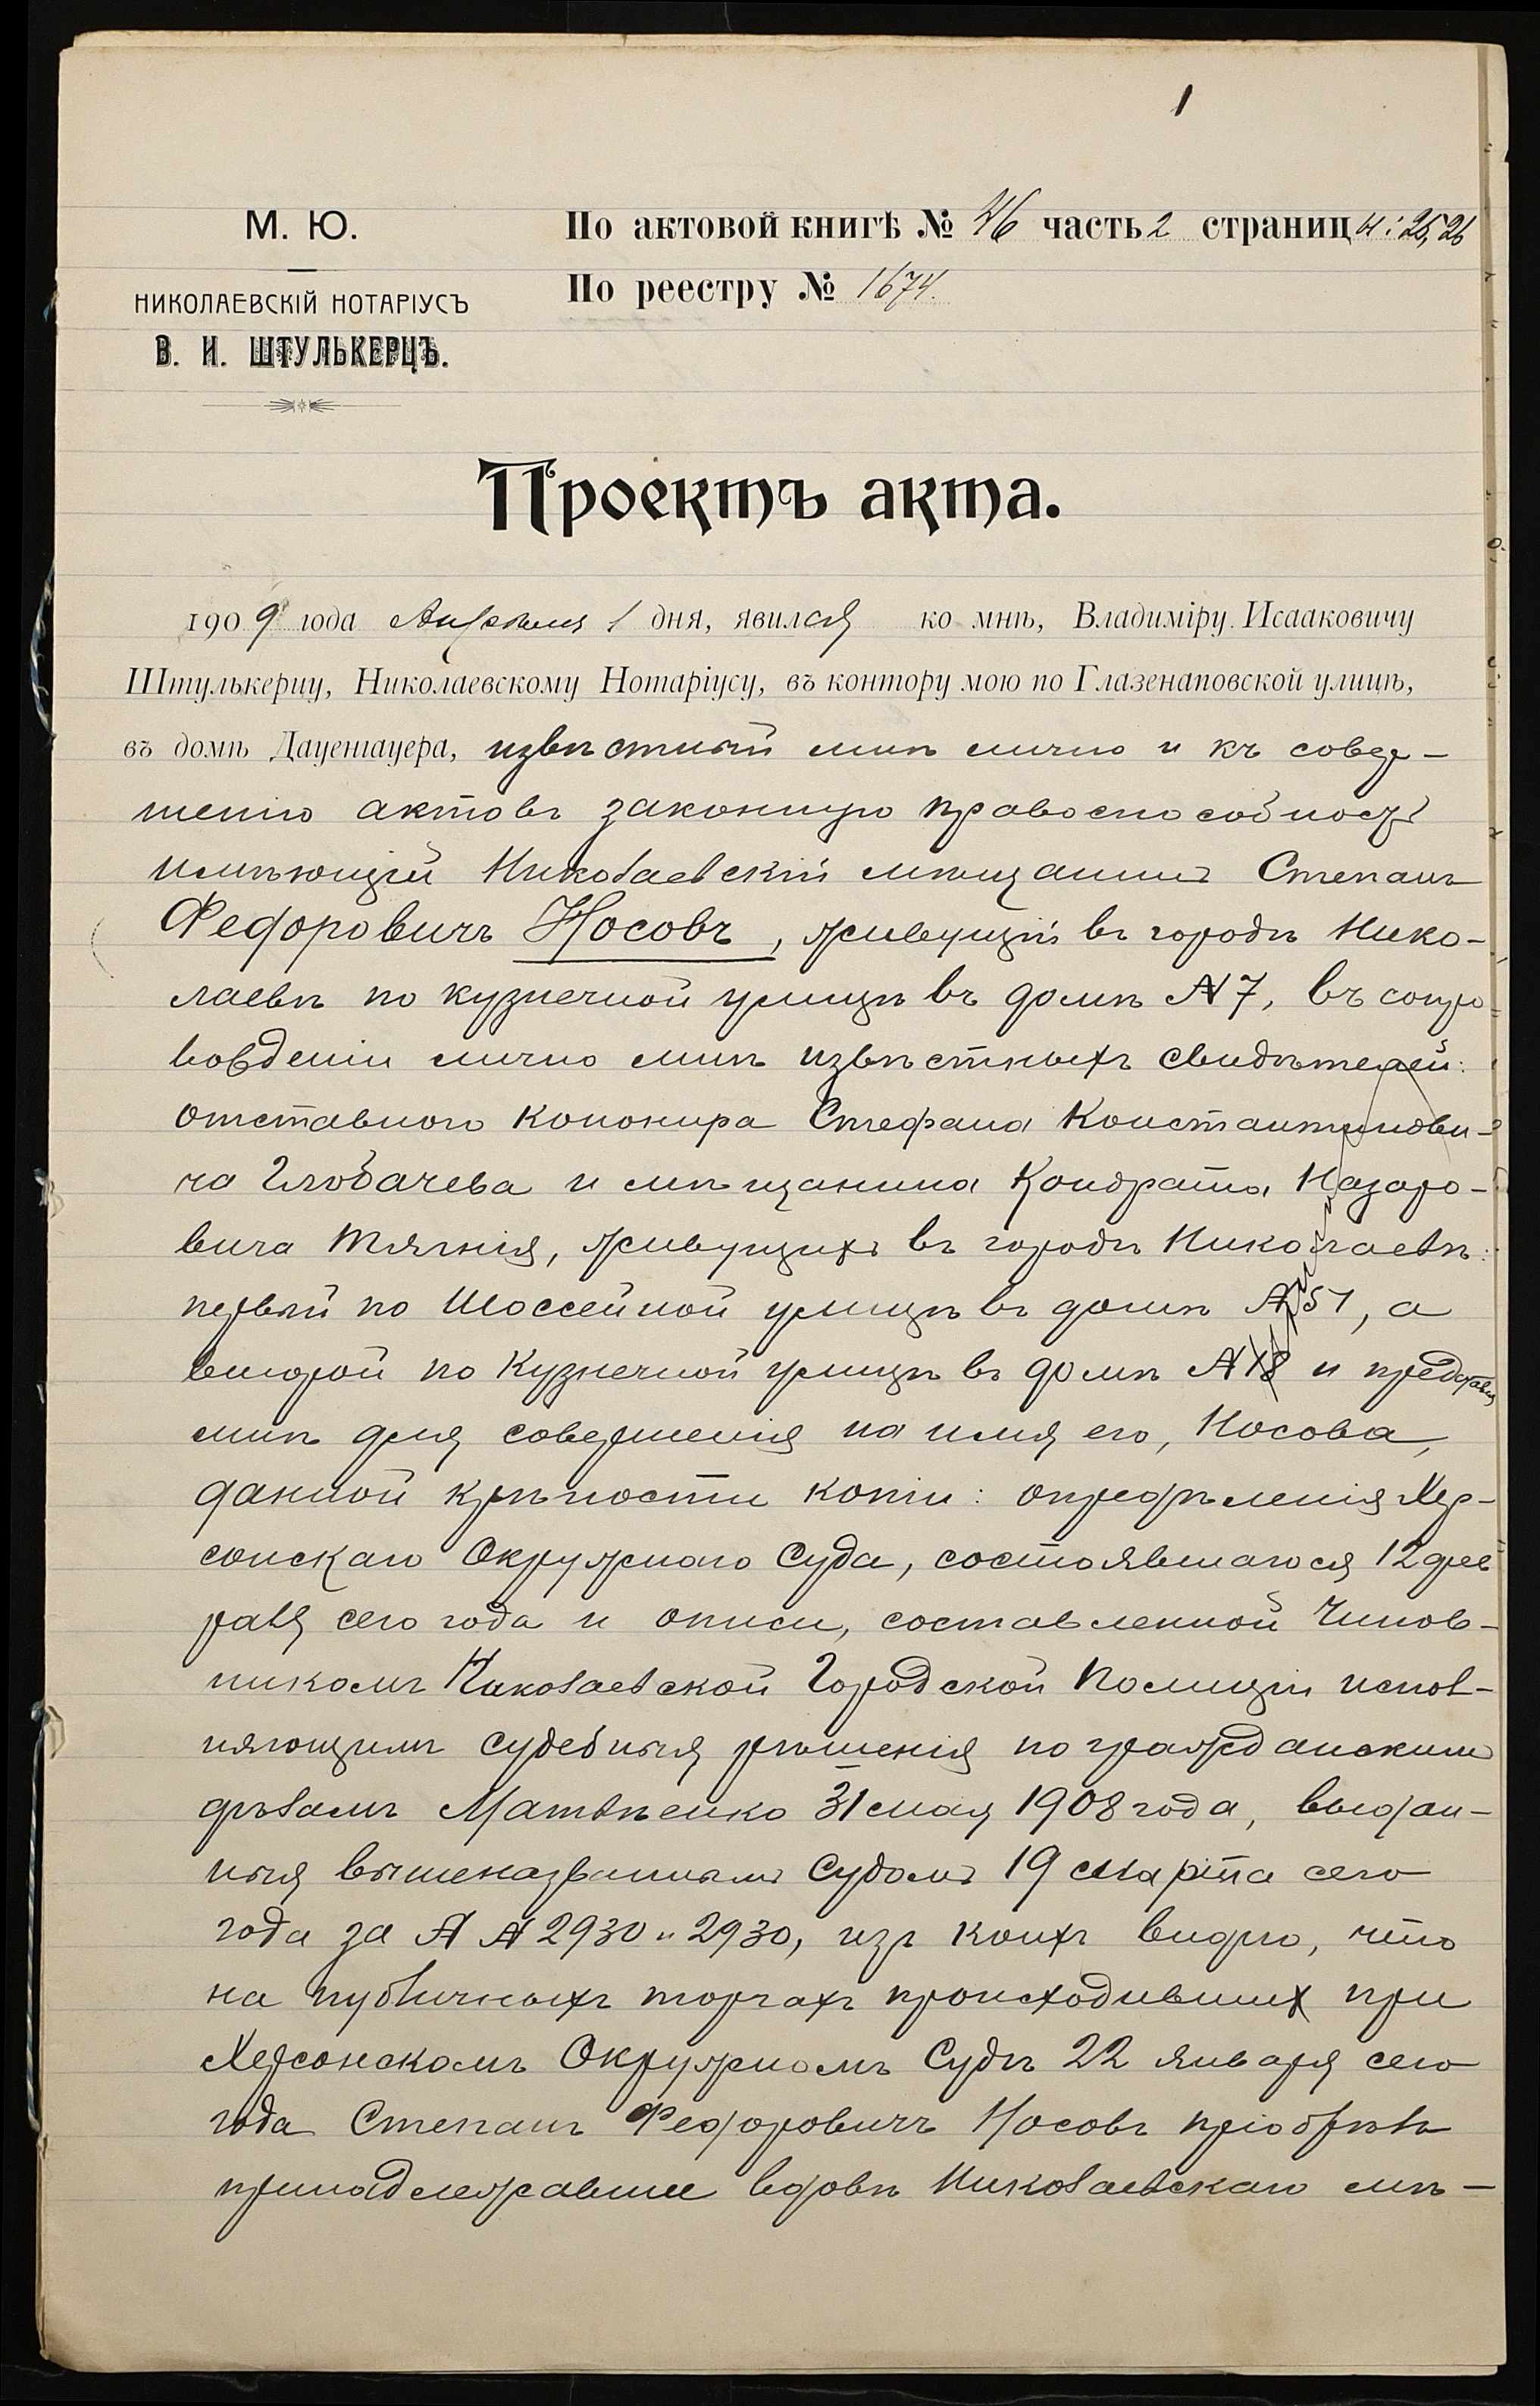 1
М. Ю.
НИКОЛАЕВСКІЙ НОТАРІУСЪ
В. И. ШТУЛЬКЕРЦЪ.
По актовой книгѣ № 46 часть 2 страницы: 25, 26
По реестру № 1674.
Проектъ акта.
1909 года Апрѣля 1 дня, явился ко мнѣ, Владиміру Исааковичу
Штулькерцу, Николаевскому Нотаріусу, въ контору мою по Глазенаповской улицѣ,
въ домѣ Дауенгауера, извѣстный мнѣ лично и къ совер-
шенію актовъ законную правоспособность
имѣющій Николаевскій мѣщанинъ Степанъ
Федоровичъ Носовъ, живущій въ городѣ Нико-
лаевѣ по Кузнечной улицѣ въ домѣ № 7, въ сопро-
вожденіи лично мнѣ извѣстныхъ свидѣтелей:
отставного канонира Стефана Константинови-
ча Глобачева и мѣщанина Кондрата Назаро-
вича Тягнія, живущихъ въ городѣ Николаевѣ:
первый по Шоссейной улицѣ въ домѣ № 51, а
второй по Кузнечной улицѣ въ домѣ № 18 и представилъ
мнѣ для совершенія на имя его, Носова,
данной крѣпости копіи: опредѣленія Хер-
сонскаго Окружнаго Суда, состоявшагося 12 фев-
раля сего года и описи, составленной Чинов-
никомъ Николаевской Городской Полиціи испол-
няющимъ судебныя рѣшенія по гражданскимъ
дѣламъ Матвѣенко 31 мая 1908 года, выдан-
ныя вышеназваннымъ Судомъ 19 марта сего
года за № № 2930 и 2930, изъ коихъ видно, что
на публичныхъ торгахъ происходившихъ при
Херсонскомъ Окружномъ Судѣ 22 января сего
года Степанъ Федоровичъ Носовъ пріобрѣлъ
принадлежавшее вдовѣ Николаевскаго мѣ-